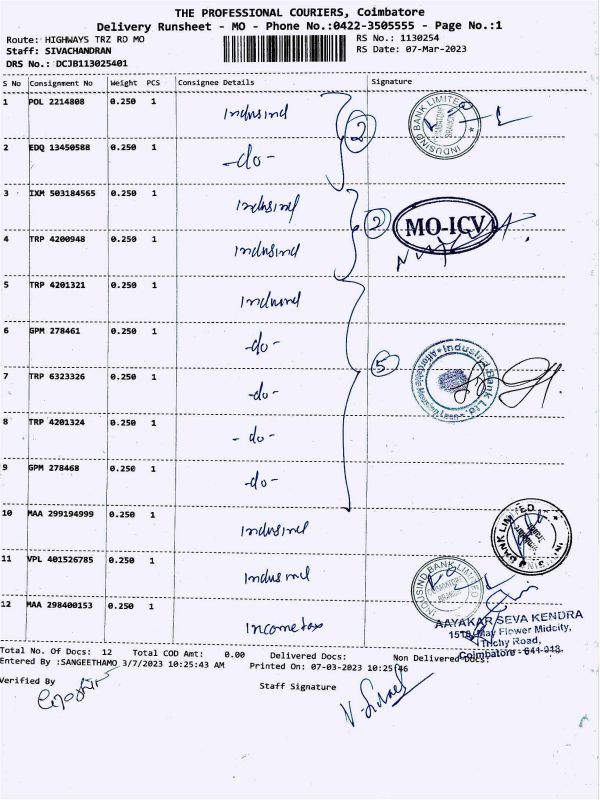 THE PROFESSIONAL COURIERS, Coimbatore
Delivery Runsheet - MO - Phone No.:0422-3505555 - Page No.:1
Route: HIGHWAYS TRZ RO MO
RS No.: 1130254
Staff: SIVACHANDRAN
RS Date: 07-Mar-2023
DRS No.: DCJB113025401
S No Consignment No Weight PCS Consignee Details Signature
1 POL 2214808 0.250 1 Indusind
INDUSIND BANK LIMITED COIMBATORE BRANCH
2 EDQ 13450588 0.250 1 -do-
2
3 IXM 503184565 0.250 1 Indusind
2
MO-ICV
4 TRP 4200948 0.250 1 Indusind
5 TRP 4201321 0.250 1 Indusind
6 GPM 278461 0.250 1 -do-
5
Indusind Bank Ltd.
7 TRP 6323326 0.250 1 -do-
8 TRP 4201324 0.250 1 -do-
9 GPM 278468 0.250 1 -do-
10 MAA 299194999 0.250 1 Indusind
BANK LIMITED
11 VPL 401526785 0.250 1 Indusind
INDUSIND BANK LIMITED COIMBATORE BRANCH
12 MAA 298400153 0.250 1 Income tax
AAYAKAR SEVA KENDRA
1510, May Flower Midcity,
Trichy Road,
Coimbatore - 641 018.
Total No. Of Docs: 12 Total COD Amt: 0.00 Delivered Docs: Non Delivered Docs:
Entered By :SANGEETHAMO 3/7/2023 10:25:43 AM Printed On: 07-03-2023 10:25:46
Verified By
Staff Signature